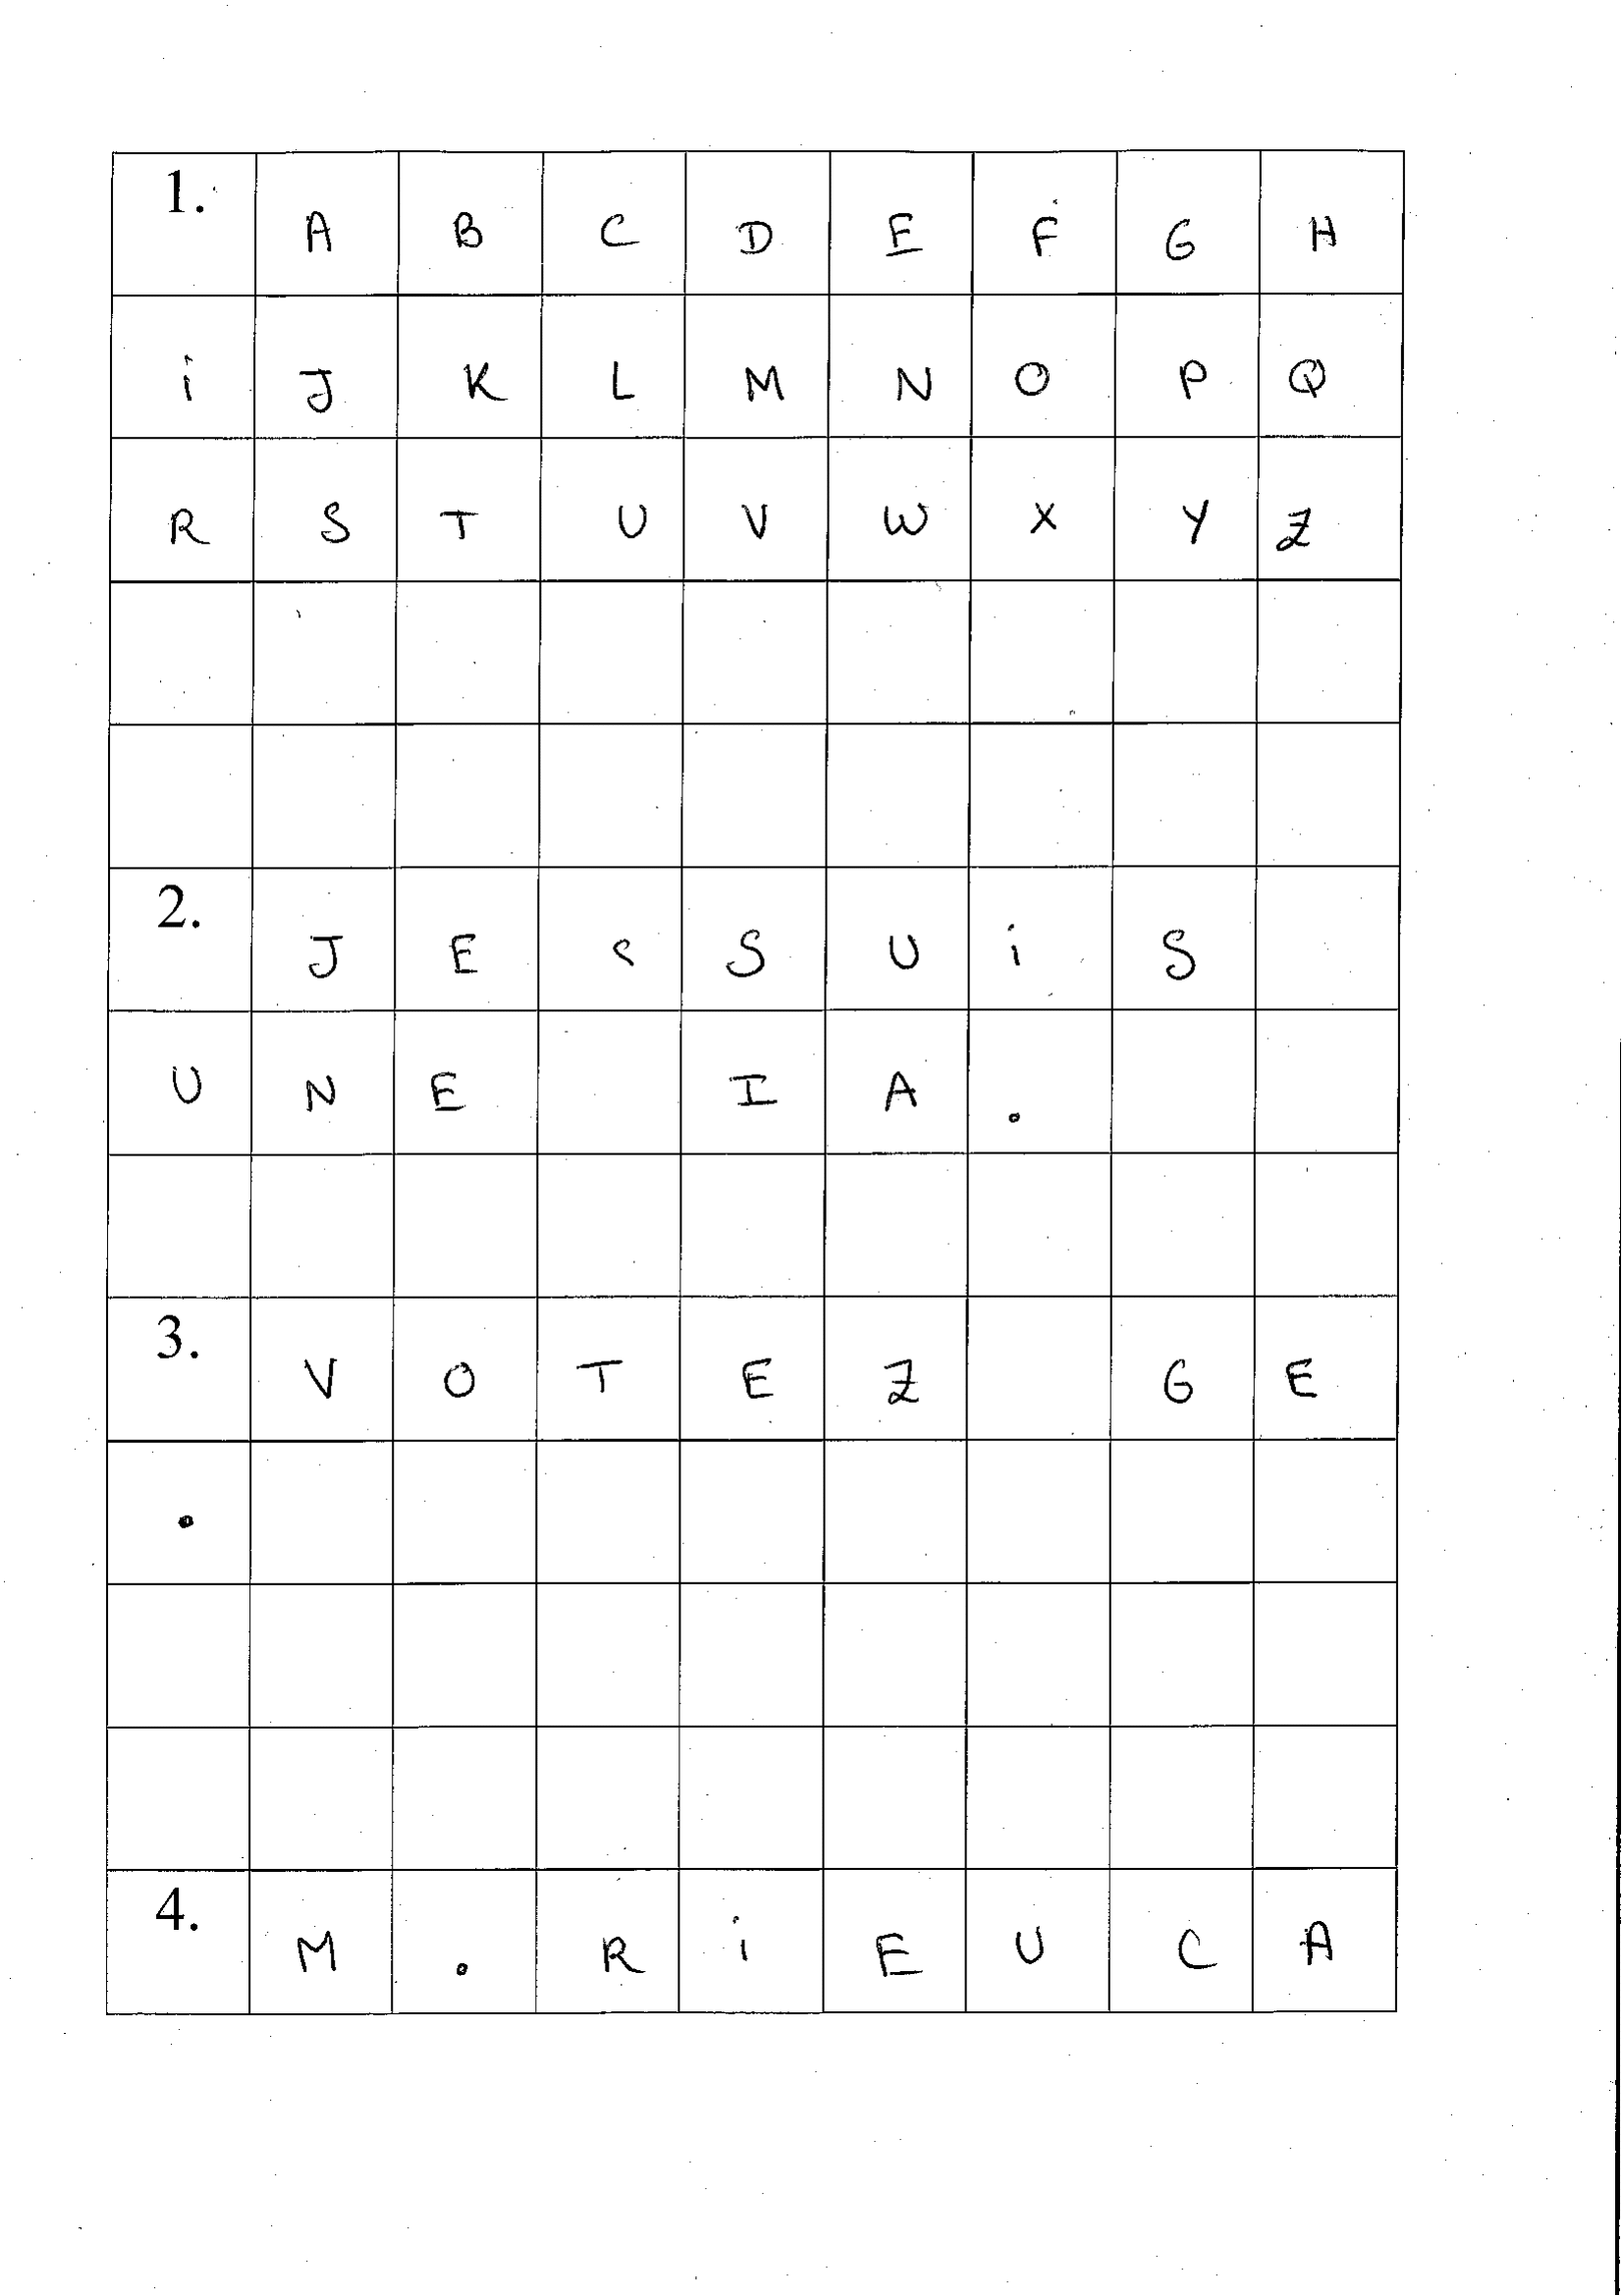 1. A B C D E F G H
i J K L M N O P Q
R S T U V W X Y Z
2. J E S U i S
U N E I A .
3. V O T E Z G E
.
4. M . R i E U C A